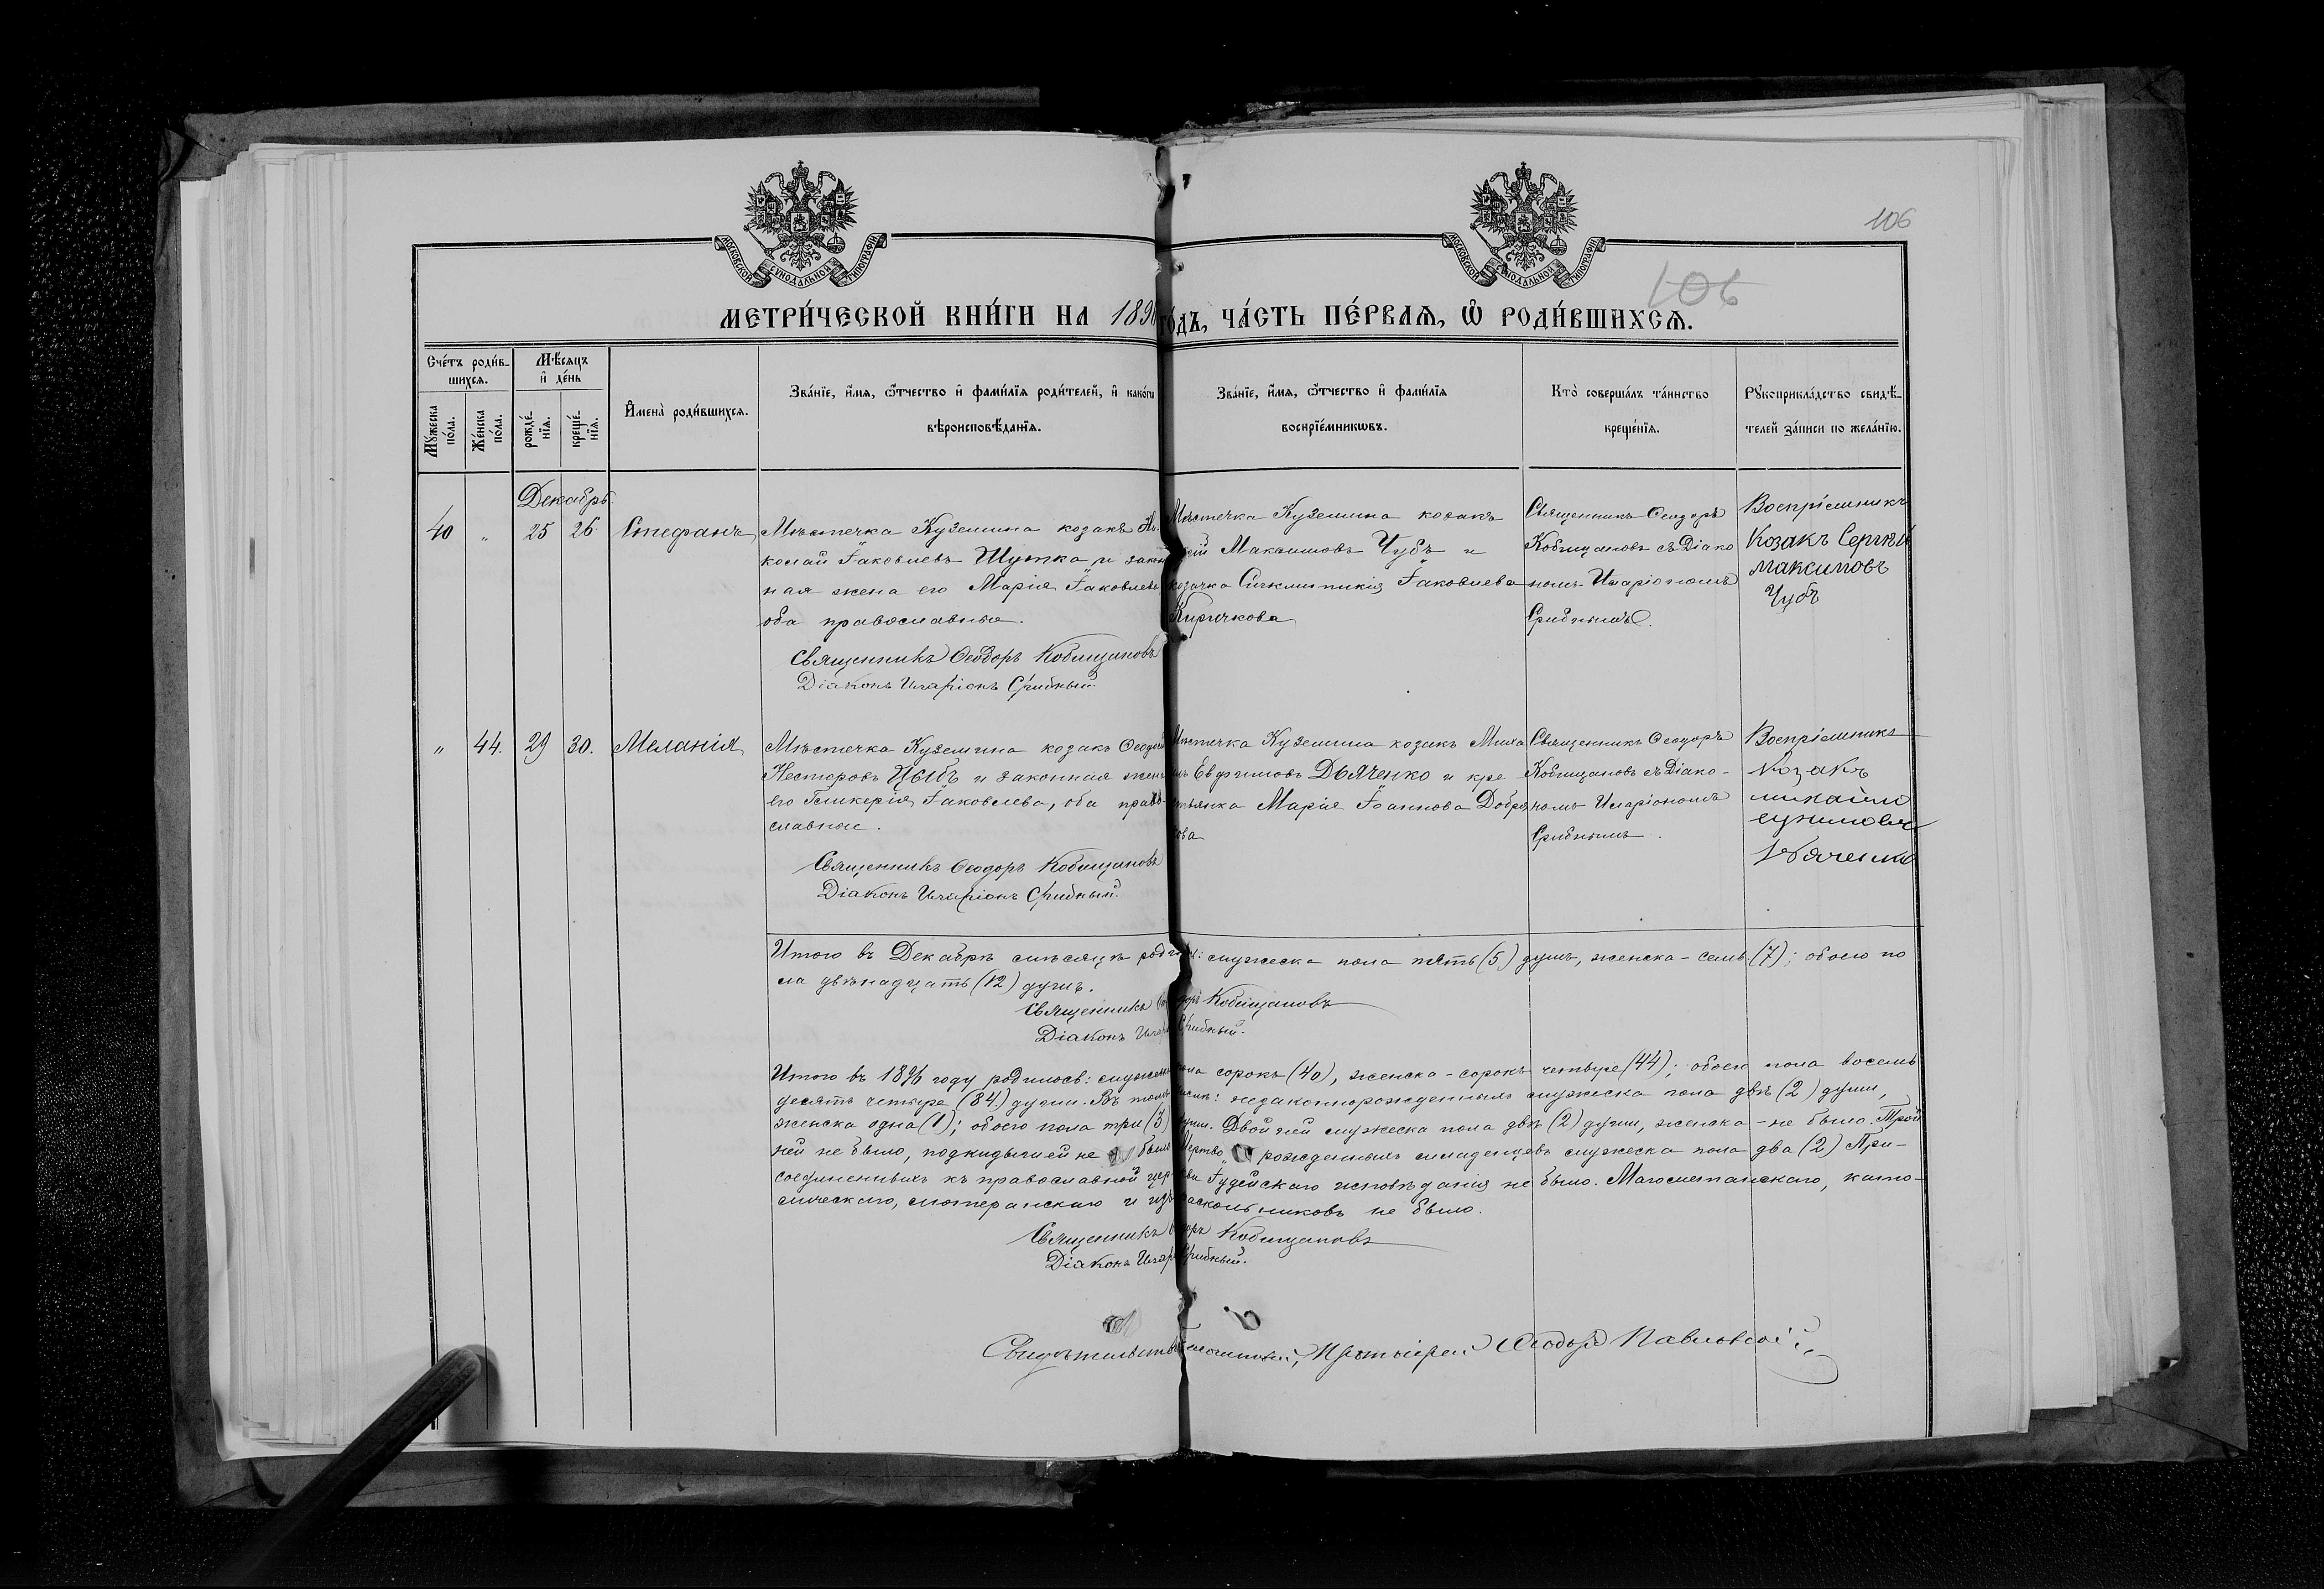 106
106
МОСКОВСКОЙ СѴНОДАЛЬНОЙ ТИПОГРАФІИ
МОСКОВСКОЙ СѴНОДАЛЬНОЙ ТИПОГРАФІИ
МЕТРИ́ЧЕСКОЙ КНИ́ГИ НА 189 ГО́ДЪ, ЧА́СТЬ ПЕ́РВАѦ, Ѡ҆ РОДИ́ВШИХСѦ.
Сче́тъ роди́в-
шихсѧ.
Мѣ́сѧцъ
и҆ де́нь
Му́жеска
по́ла.
Же́нска
по́ла.
рожде́-
нїѧ.
креще́-
нїѧ.
И҆мена̀ роди́вшихсѧ.
Зва́нїе, и҆́мѧ, ѻ҆́тчество и҆ фами́лїѧ роди́телей, и҆ како́гѡ
вѣроисповѣ́данїѧ.
Зва́нїе, и҆́мѧ, ѻ҆́тчество и҆ фами́лїѧ
воспрїе́мникѡвъ.
Кто̀ соверша́лъ та́инство
креще́нїѧ.
Рꙋкоприкла́дство свидѣ́-
телей за́писи по жела́нїю.
Декабрь.
40 " 25 26 Стефанъ
Мѣстечка Куземина козакъ Ни-
колай Іаковлевъ Шутка и закон
ная жена его Марія Іаковлева
оба православные.
Священникъ Ѳеодоръ Кобищановъ
Діаконъ Иларіонъ Грибный.
Мѣстечка Куземина козакъ
Максимовъ Чубъ и
козачка Іаковлева
Киричкова
Священникъ Ѳеодоръ
Кобищановъ съ Діако
номъ Иларіономъ
Грибнымъ.
Воспріемникъ
Козакъ Сергѣй
Максимовъ
Чубъ
" 44. 29 30. Меланія
Мѣстечка Куземина козакъ Ѳеодоръ
Несторовъ Цыбъ и законная жена
его Гликерія Іаковлева, оба право-
славные.
Священникъ Ѳеодоръ Кобищановъ
Діаконъ Иларіонъ Грибный.
Мѣстечка Куземина козакъ Миха
илъ Евфимовъ Дьяченко и кре-
стьянка Марія Іоаннова
Священникъ Ѳеодоръ
Кобищановъ съ Діако-
номъ Иларіономъ
Грибнымъ.
Воспріемникъ
Козакъ
михаило
Дяченко
Итого въ Декабрѣ мѣсяцѣ родилось: мужеска пола пять (5) душъ, женска - семь (7); обоего по
ла двѣнадцать (12) душъ.
Священникъ Ѳеодоръ Кобищановъ
Діаконъ Иларіонъ Грибный.
Итого въ 1896 году родилось: мужеска пола сорокъ (40), женска - сорокъ четыре (44); обоего пола восемь
десятъ четыре (84) души. Въ томъ числѣ: незаконнорожденныхъ мужеска пола двѣ (2) души,
женска одна (1); обоего пола три (3) души. Двойней мужеска пола двѣ (2) души, женска - не было. Трой
ней не было, подкидышей не было. Мертворожденныхъ младенцевъ мужеска пола два (2) При-
соединенныхъ къ православной церкви Іудейскаго исповѣданія не было. Магометанскаго, като-
лическаго, лютеранскаго и изъ раскольниковъ не было.
Священникъ Ѳеодоръ Кобищановъ
Діаконъ Иларіонъ Грибный.
Протоіерей Ѳеодоръ Павловскій